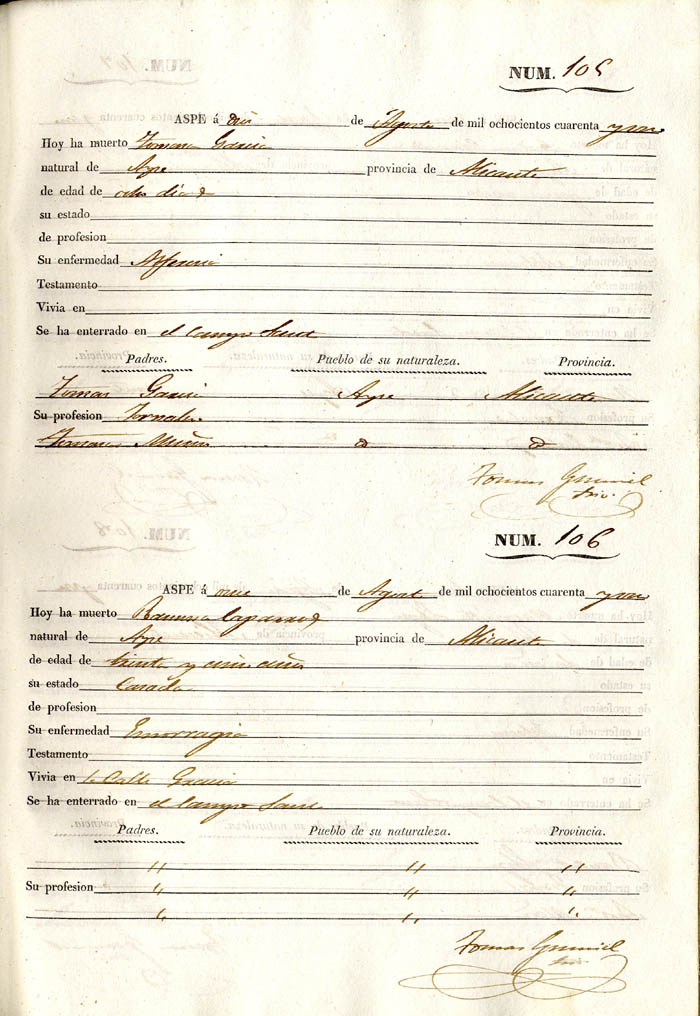 NUM. 105
ASPE á diez de Agosto de mil ochocientos cuarenta y uno
Hoy ha muerto Tomasa Garcia
natural de Aspe provincia de Alicante
de edad de ocho dias
su estado
de profesion
Su enfermedad Alferecia
Testamento
Vivia en
Se ha enterrado en el Campo Santo
Padres. Pueblo de su naturaleza. Provincia.
Tomas Garcia Aspe Alicante
Su profesion Jornalero
Tomasa Muñoz
Tomas
NUM. 106
ASPE á once de Agosto de mil ochocientos cuarenta y uno
Hoy ha muerto Ramona Caparros
natural de Aspe provincia de Alicante
de edad de treinta y cinco años
su estado Casada
de profesion
Su enfermedad Emorragia
Testamento
Vivia en la Calle Gracia
Se ha enterrado en el Campo Santo
Padres. Pueblo de su naturaleza. Provincia.
" " "
Su profesion " " "
" " "
Tomas